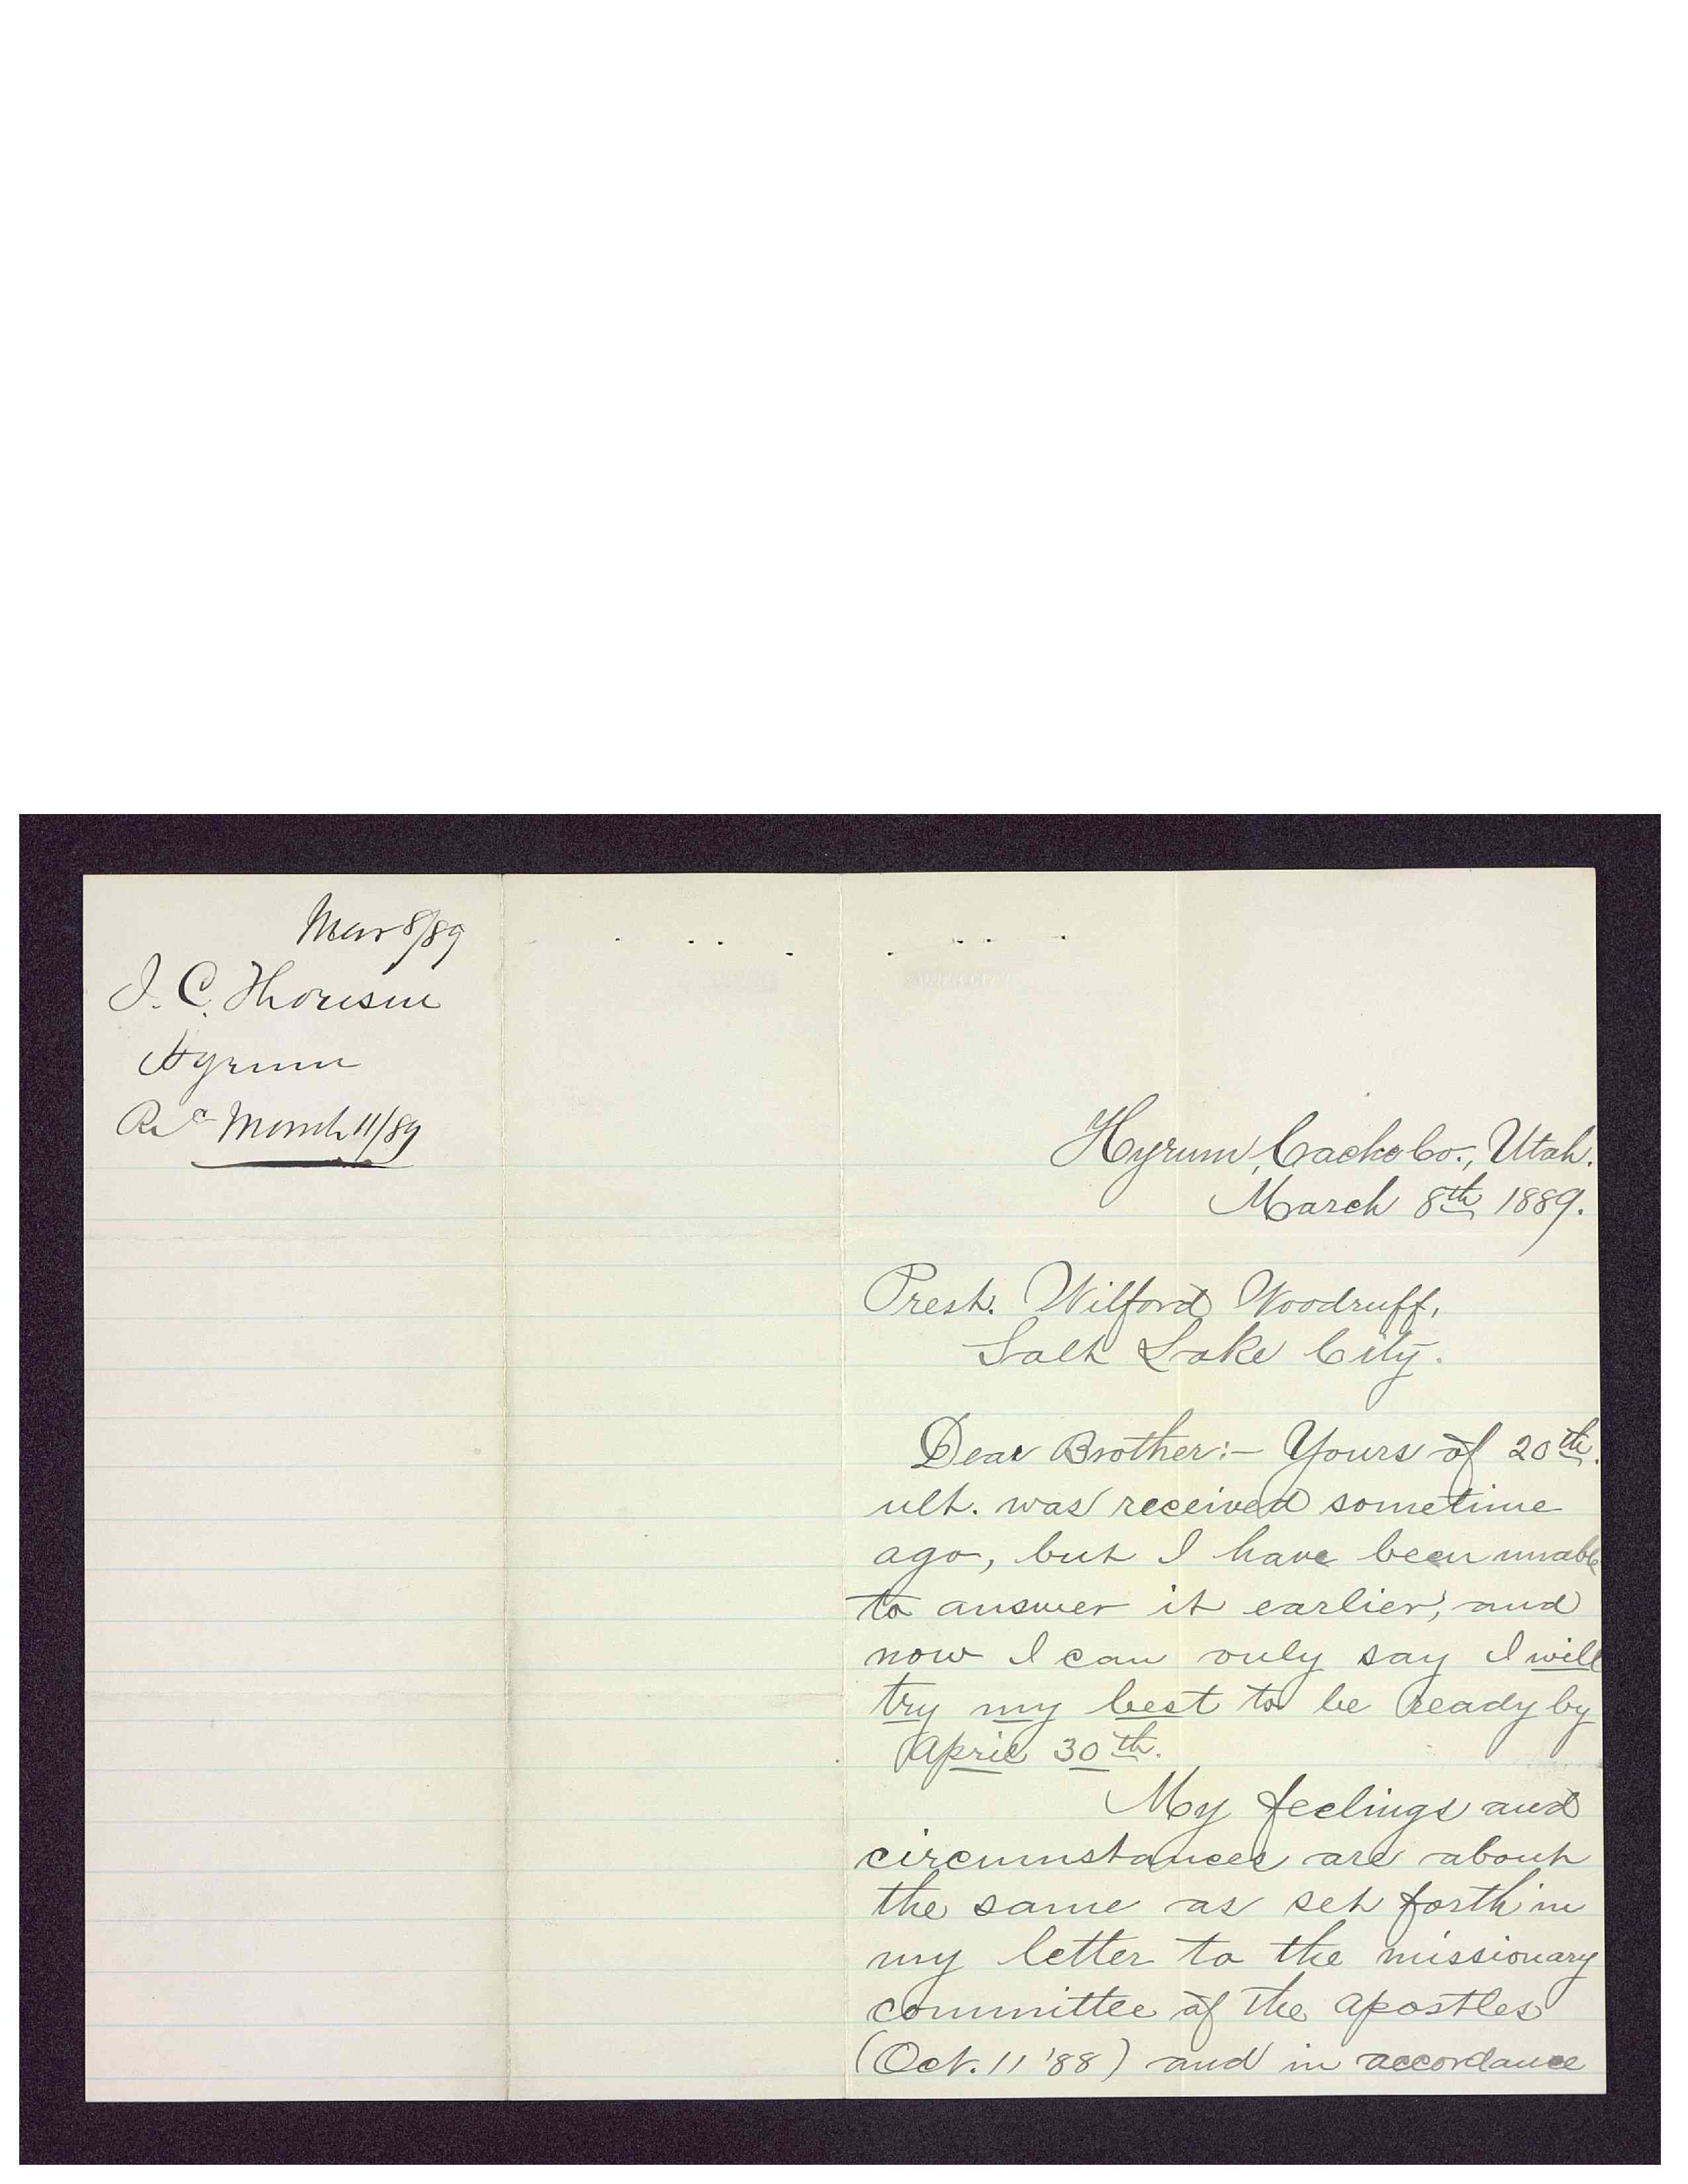 Mar 8/89
I. C. Thoresen
Hyrum
Rec March 11/89
Hyrum, Cache Co., Utah.
March 8th, 1889.
Prest. Wilford Woodruff,
Salt Lake City.
Dear Brother:- Yours of 20th.
ult. was received sometime
ago, but I have been unable
to answer it earlier, and
now I can only say I will
try my best to be ready by
April 30th.
My feelings and
circumstances are about
the same as set forth in
my letter to the missionary
committee of the apostles
(Oct. 11 '88) and in accordance